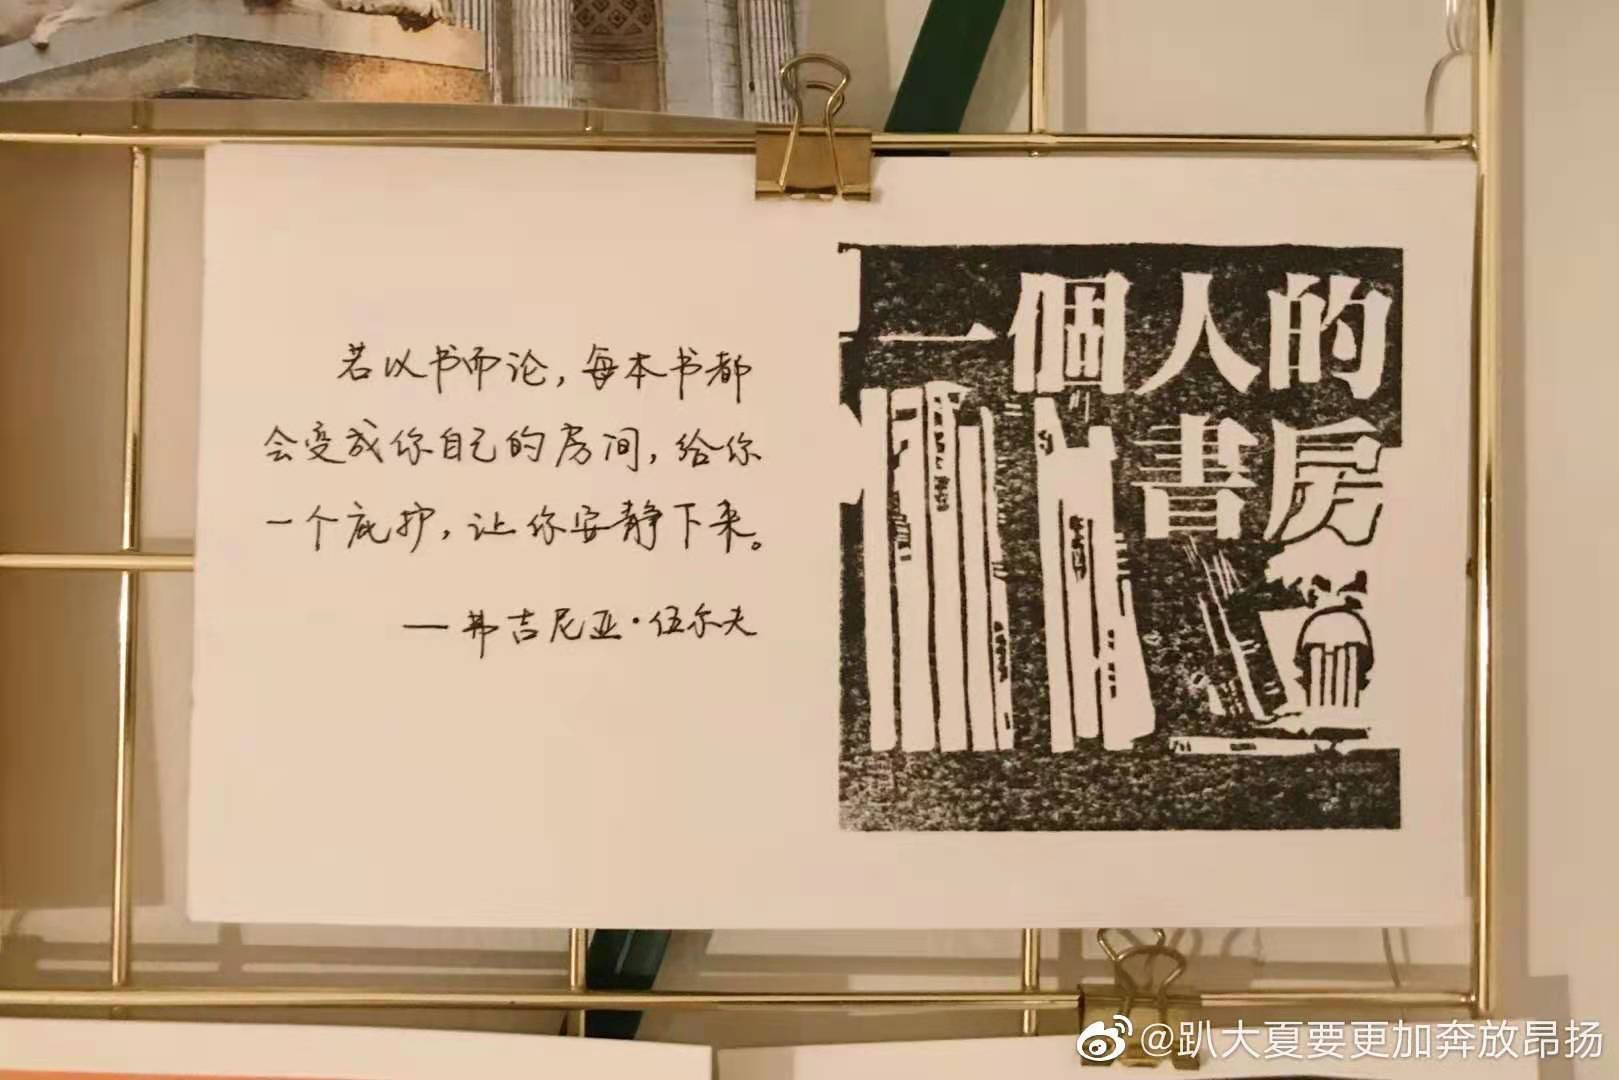 若以书而论，每本书都
会变成你自己的房间，给你
一个庇护，让你安静下来。
—弗吉尼亚·伍尔夫
一個人的
書房
@趴大夏要更加奔放昂扬